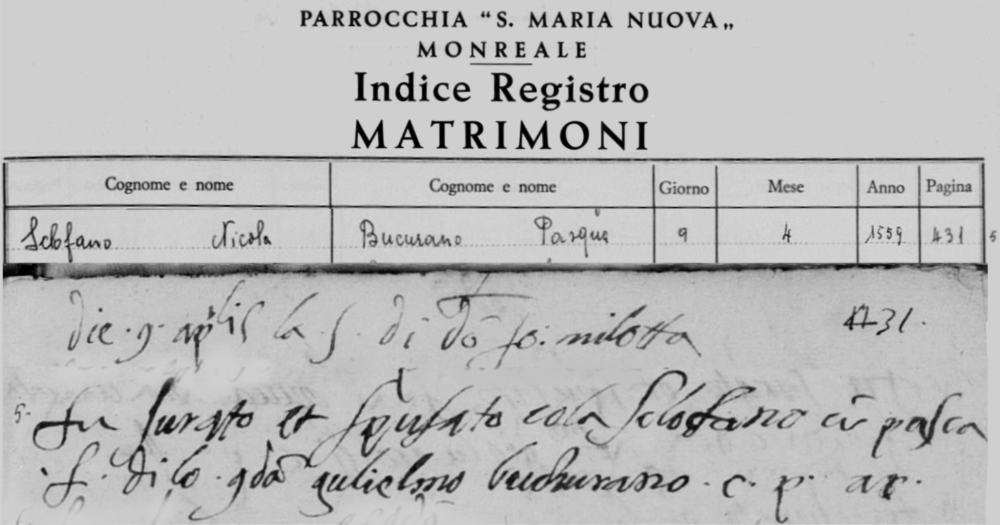 PARROCCHIA "S. MARIA NUOVA„
MONREALE
Indice Registro
MATRIMONI
Cognome e nome Cognome e nome Giorno Mese Anno Pagina
Sclofano Nicola Bucurano Pasqua 9 4 1559 431 5
die 9 aplis la s. di do jo. milotta 431.
5. fu jurato et spusato cola sclofano cu pasca
f. di lo qda gulielmo buchurano. c. p. ar.